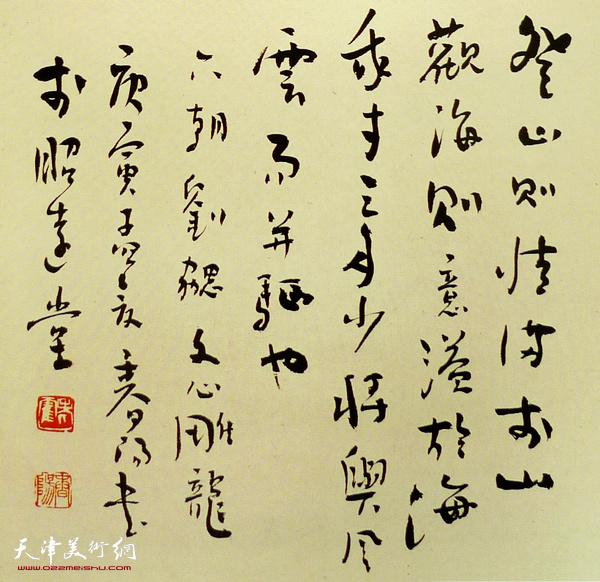 登山則情滿於山
觀海則意溢於海
我才之多少將與風
雲而并驅也
六朝劉勰文心雕龍
庚寅孟夏春陽書
於昭遠堂
天津美術網
www.022meishu.com